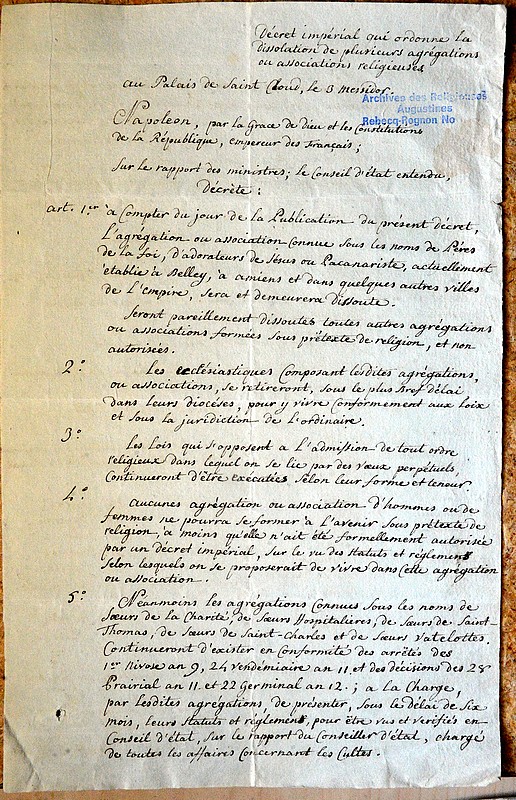 Décret impérial qui ordonne la
dissolation de plusieurs agrégations
ou associations religieuses
au Palais de Saint Cloud, le 3 messidor.
Archives des Religieuses
Augustines
Rebecq-Rognon No
Napoleon, par la Grace de Dieu et les Constitutions
de la République, empereur des Français;
Sur le rapport des ministres; le Conseil d'état entendu,
Décrète :
art. 1.er à Compter du jour de la Publication du présent décret,
L'agrégation ou association Connue Sous les noms de Pères
de la foi, d'adorateurs de Jésus ou Pacanariste, actuellement
établie à Belley, à amiens et dans quelques autres villes
de L'Empire, Sera et demeurera dissoute.
Seront pareillement dissoutes toutes autres agrégations
ou associations formées Sous prétexte de religion, et non
autorisées.
2.° Les ecclésiastiques Composant lesdites agrégations,
ou associations, se retireront, sous le plus bref délai
dans leurs diocèses, pour y vivre Conformement aux loix
et Sous la juridiction de L'ordinaire.
3.° Les Lois qui s'opposent a L'admission de tout ordre
religieux dans lequel on se lie par des vœux perpétuels,
Continueront d'être exécutées Selon leur forme et teneur.
4.° aucunes agrégation ou association d'hommes ou de
femmes ne pourra se former à L'avenir Sous prétexte de
religion, à moins qu'elle n'ait été formellement autorisée
par un décret impérial, Sur le vu des Statuts et règlemens
Selon lesquels on se proposerait de vivre dans Cette agrégation
ou association.
5.° Néanmoins les agrégations Connues Sous les noms de
Sœurs de la Charité, de Sœurs Hospitalières, de Sœurs de Saint-
Thomas, de Sœurs de Saint-Charles et de Sœurs Vatelottes.
Continueront d'exister en Conformité des arrêtés des
1er Nivose an 9, 24 Vendémiaire an 11 et des décisions des 28
Prairial an 11. et 22 Germinal an 12. ; a la Charge,
par lesdites agrégations, de présenter, Sous le délai de Six
mois, leurs Statuts et règlemens, pour être vus et vérifiés en
Conseil d'état, Sur le rapport du Conseiller d'état, chargé
de toutes les affaires Concernant les Cultes.